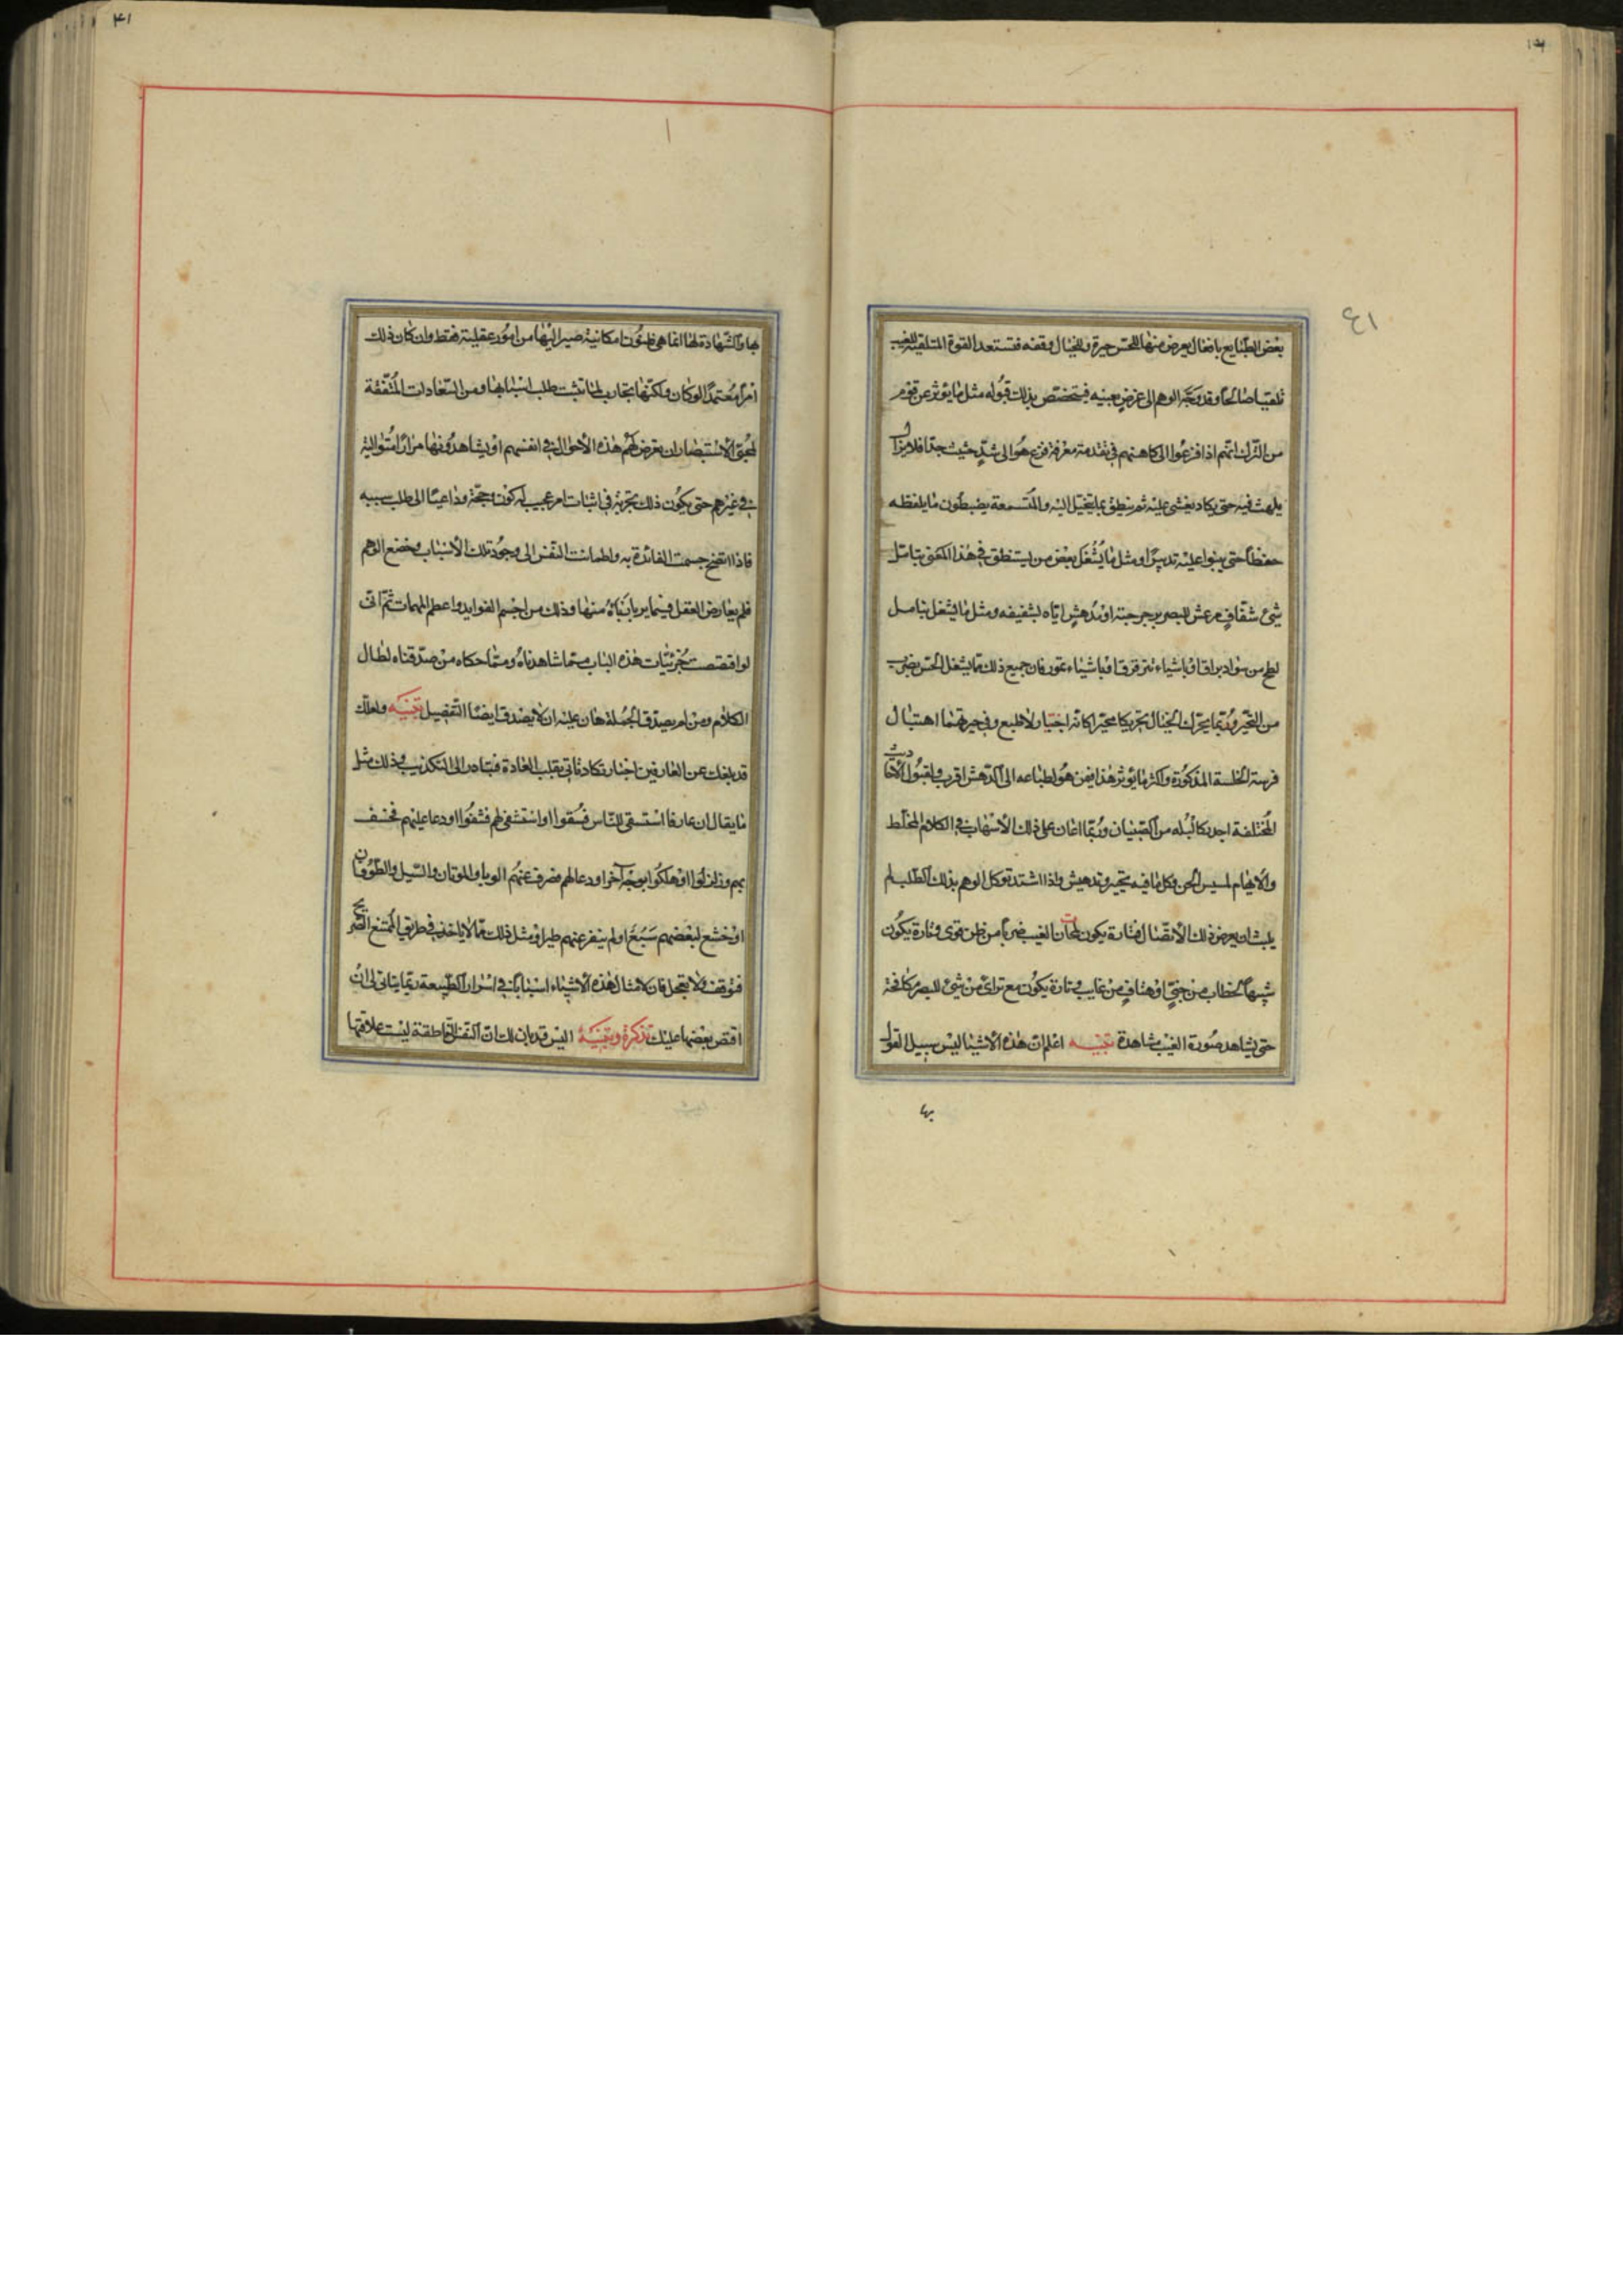 ٤١
بعض الطبايع بافعال يعرض منها للحس حيرة وللخيال وقفه فتستعد القوة المتلقية للغيب
تلقيا صالحا وقد وجّه الوهم الى غرض بعينه فيتخصص بذلك قبوله مثل ما يؤثر عن قوم
من الترك انهم اذا فزعوا الى كاهنهم فى تقدمة معرفة فزع هو الى شدّ حثيث جدا فلا يزال
يلهث فيه حتى يكاد يغشى عليه ثم ينطق بما يتخيل اليه والمستمعة يضبطون ما يلفظه
حفظا حتى يبنوا عليه تدبيرا ومثل ما يُشغل بعض من يستنطق فى هذا المعنى بتامّل
شئ شفاف مرعش للبصر برجرجته او مُدهش اياه بشفيفه ومثل ما يشغل بتامل
لطخ من سواد براق او باشياء تترقرق او باشياء تمور فان جميع ذلك مما يشغل الحس بضرب
من التحير وربما يحرك الخيال تحريكا محيرا كانه اجبار لا طبع وفى حيرتهما اهتبال
فرصة الخلسة المذكورة واكثر ما يؤثر هذا ففى من هو بطباعه الى الدهش اقرب وبقبول الاحاديث
المختلطة اجدر كالبُله من الصبيان وربما اعان على ذلك الاسهاب فى الكلام المختلط
والايهام لمسيس الجن وكل ما فيه تحيير وتدهيش واذا اشتد توكل الوهم بذلك الطلب لم
يلبث ان يعرض ذلك الاتصال فتارة يكون لمحان الغيب ضربا من ظن قوى وتارة يكون
شبيها بخطاب من جنىّ او هتاف من غايب وتارة يكون مع تراى من شئ للبصر مكافحة
حتى يشاهد صورة الغيب مشاهدة تنبيه اعلم ان هذه الاشيا ليس سبيل القول
بها
٤١
بها والشهادة لها انما هى ظنون امكانية صير اليها من امور عقلية فقط وان كان ذلك
امرا معتمدا لو كان ولكنها تجارب لما ثبتت طلب اسبابها ومن السعادات المتفقة
لمحبى الاستبصار ان يعرض لهم هذه الاحوال فى انفسهم او يشاهدوها مرارا متوالية
فى غيرهم حتى يكون ذلك تجربة فى اثبات امر عجيب له كون وحجة وداعيا الى طلب سببه
فاذا اتضح جسمت الفائدة به واطمانت النفس الى وجود تلك الاسباب وخضع الوهم
فلم يعارض العقل فيما يربا رباه منها وذلك من اجسم الفوايد واعظم المهمات ثم انى
لو اقتصصت جزئيات هذه الباب مما شاهدناه ومما حكاه من صدقناه لطال
الكلام ومن لم يصدق الجملة هان عليه ان لا يصدق ايضا التفصيل تنبيه ولعلك
قد يبلغك عن العارفين اخبار تكاد تاتى بقلب العادة فتبادر الى التكذيب وذلك مثل
ما يقال ان عارفا استسقى للناس فسقوا او استشفى لهم فشفوا او دعا عليهم فخسف
بهم وزلزلوا او هلكوا بوجه آخر او دعا لهم فصرف عنهم الوبا والموتان والسيل والطوفان
او خشع لبعضهم سَبُع او لم ينفر عنهم طير او مثل ذلك مما لا ياخذ فى طريق الممتنع الصريح
فتوقف ولا تعجل فان لامثال هذه الاشياء اسبابا فى اسرار الطبيعة ربما يتاتى لى ان
اقتص بعضها عليك تذكرة وتنبيه اليس قد بان لك ان النفس الناطقة ليست علاقتها